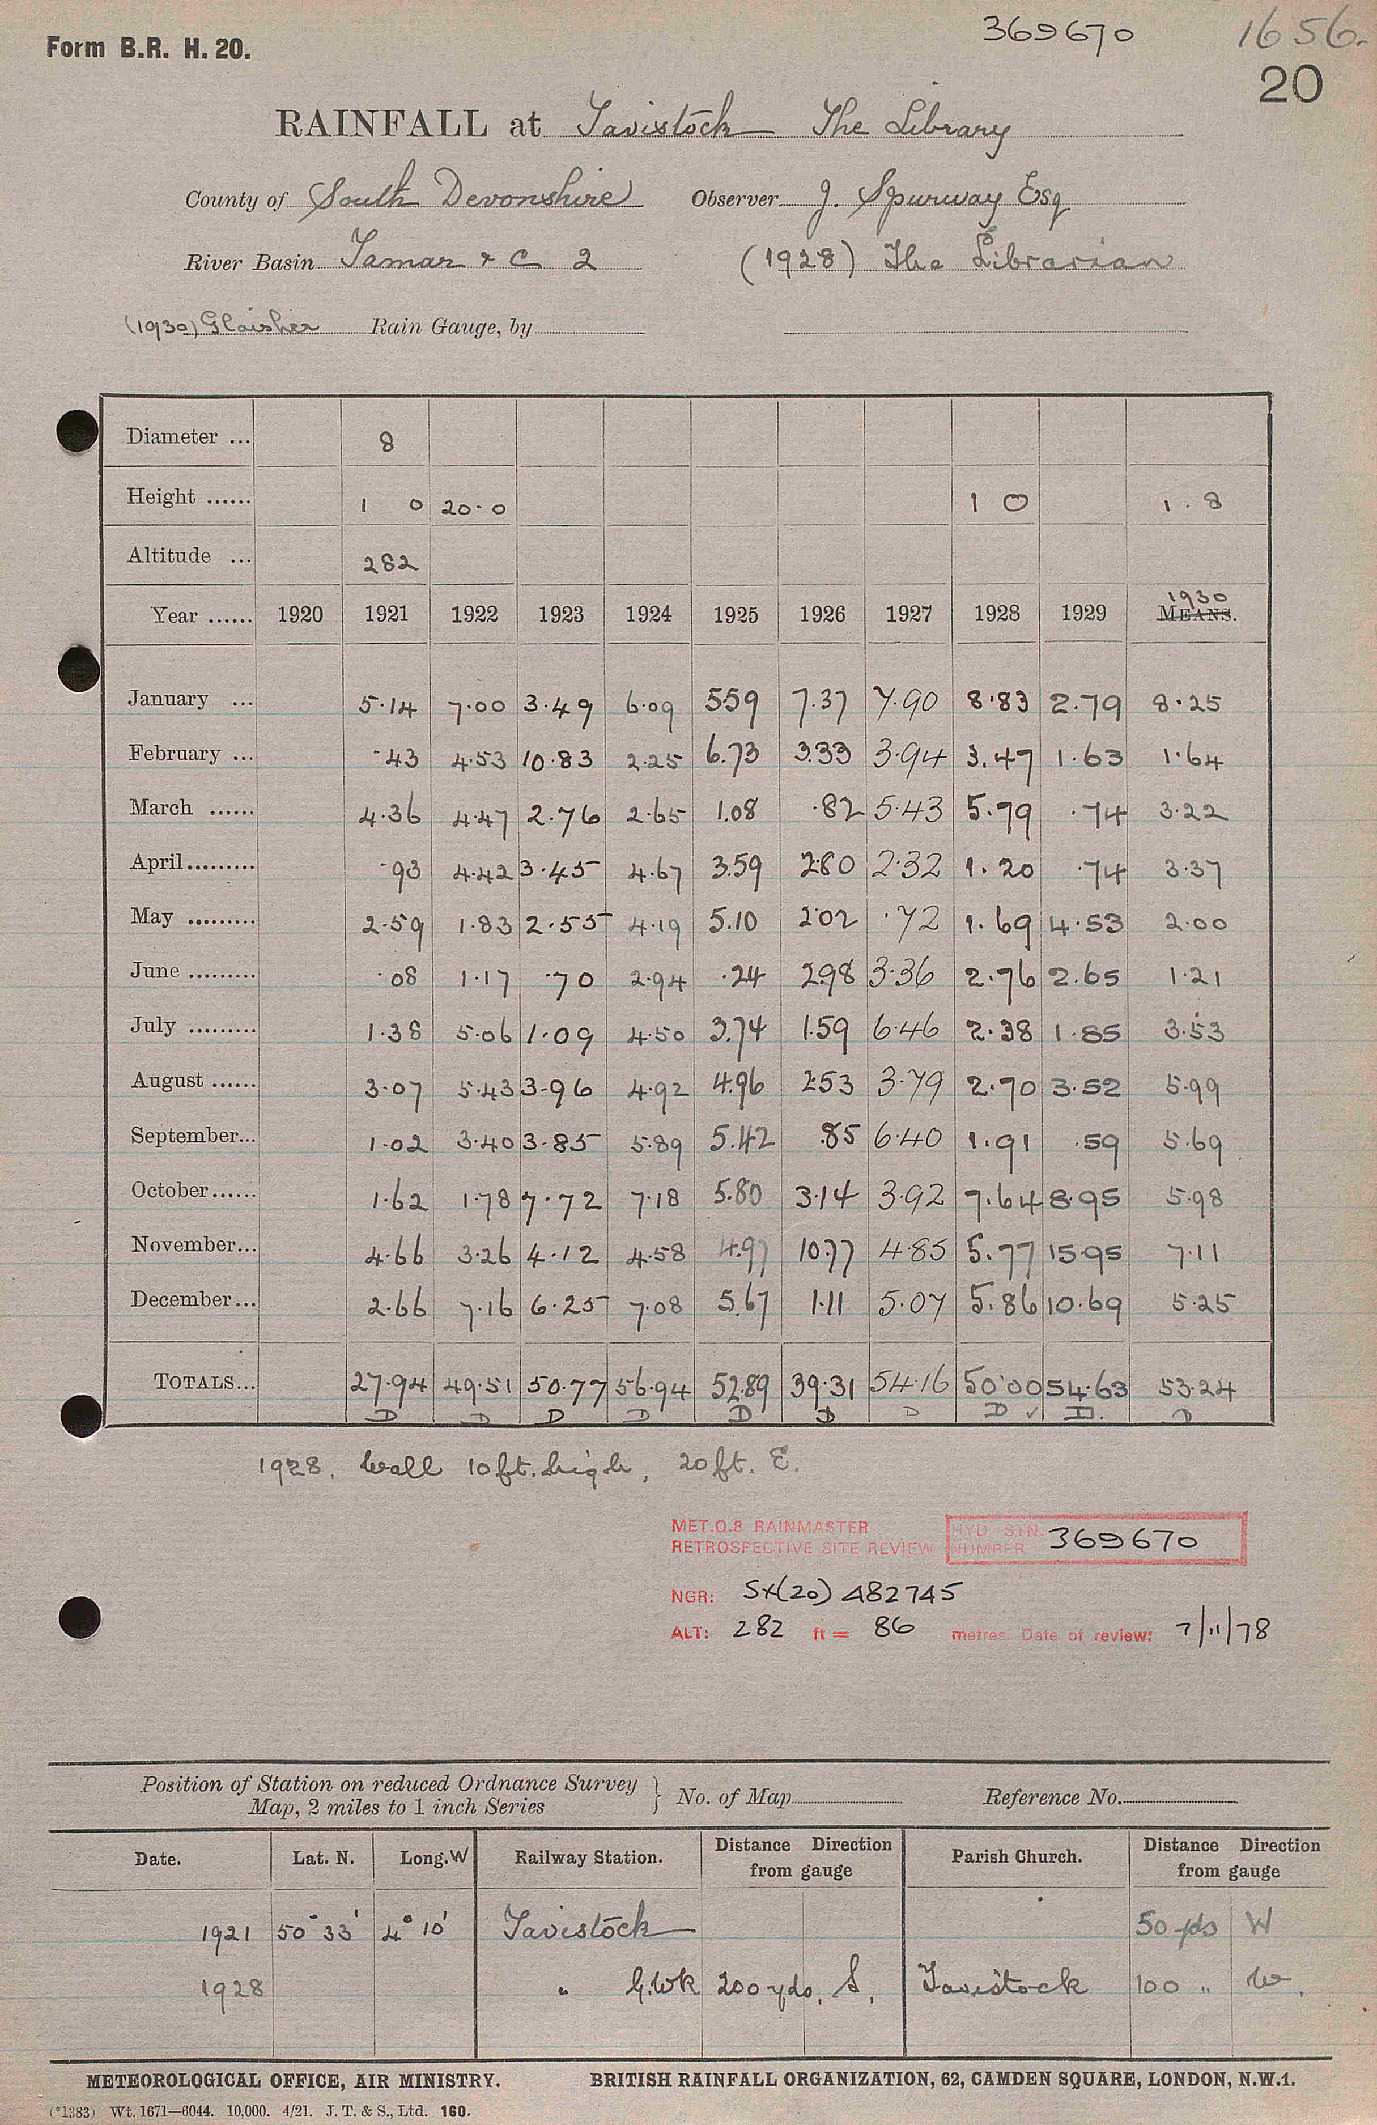 369670 1656.
Form B.R. H. 20.
20
RAINFALL at Tavistock The Library
County of South Devonshire Observer J. Spurway Esq
River Basin Tamar & C 2 (1928) The Librarian
(1930) Glaisher Rain Gauge, by
Diameter ... 8
Height ...... 1 0 20-0 1 0 1 . 8
Altitude ... 282
Year ...... 1920 1921 1922 1923 1924 1925 1926 1927 1928 1929 1930 MEANS.
January ... 5.14 7.00 3.49 6.09 5.59 7.37 7.90 8.83 2.79 8.25
February ... .43 4.53 10.83 2.25 6.73 3.33 3.94 3.47 1.63 1.64
March ...... 4.36 4.47 2.76 2.65 1.08 .82 5.43 5.79 .74 3.22
April......... .93 4.42 3.45 4.67 3.59 2.80 2.32 1.20 .74 3.37
May ......... 2.59 1.83 2.55 4.19 5.10 2.02 .72 1.69 4.53 2.00
June ......... .08 1.17 .70 2.94 .24 2.98 3.36 2.76 2.65 1.21
July ......... 1.38 5.06 1.09 4.50 3.74 1.59 6.46 2.38 1.85 3.53
August ...... 3.07 5.43 3.96 4.92 4.96 2.53 3.79 2.70 3.52 5.99
September... 1.02 3.40 3.85 5.89 5.42 .85 6.40 1.91 .59 5.69
October...... 1.62 1.78 7.72 7.18 5.80 3.14 3.92 7.64 8.95 5.98
November... 4.66 3.26 4.12 4.58 4.97 10.77 4.85 5.77 15.95 7.11
December... 2.66 7.16 6.25 7.08 5.67 1.11 5.07 5.86 10.69 5.25
TOTALS... 27.94 49.51 50.77 56.94 52.89 39.31 54.16 50.00 54.63 53.24
D D D D D D D D ✓ D. D
1928. Wall 10 ft. high, 20 ft. E.
MET.O.8 RAINMASTER
RETROSPECTIVE SITE REVIEW HYD STN. NUMBER 369670
NGR: SX(20) 482745
ALT: 282 ft = 86 metres. Date of review: 7/11/78
Position of Station on reduced Ordnance Survey
Map, 2 miles to 1 inch Series } No. of Map Reference No.
Date. Lat. N. Long. W Railway Station. Distance Direction from gauge Parish Church. Distance Direction from gauge
1921 50° 33' 4° 10' Tavistock 50 yds W
1928 " G.W.R 200 yds. S. Tavistock 100 " W.
METEOROLOGICAL OFFICE, AIR MINISTRY. BRITISH RAINFALL ORGANIZATION, 62, CAMDEN SQUARE, LONDON, N.W.1.
(*1383) Wt. 1671—6044. 10,000. 4/21. J. T. & S., Ltd. 160.